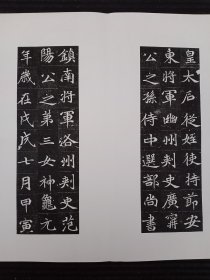 皇太后從姪使持節安
東將軍幽州刺史廣寧
公之孫侍中選部尚書
鎮南將軍洛州刺史范
陽公之第三女神龜元
年歲在戊戌七月甲寅